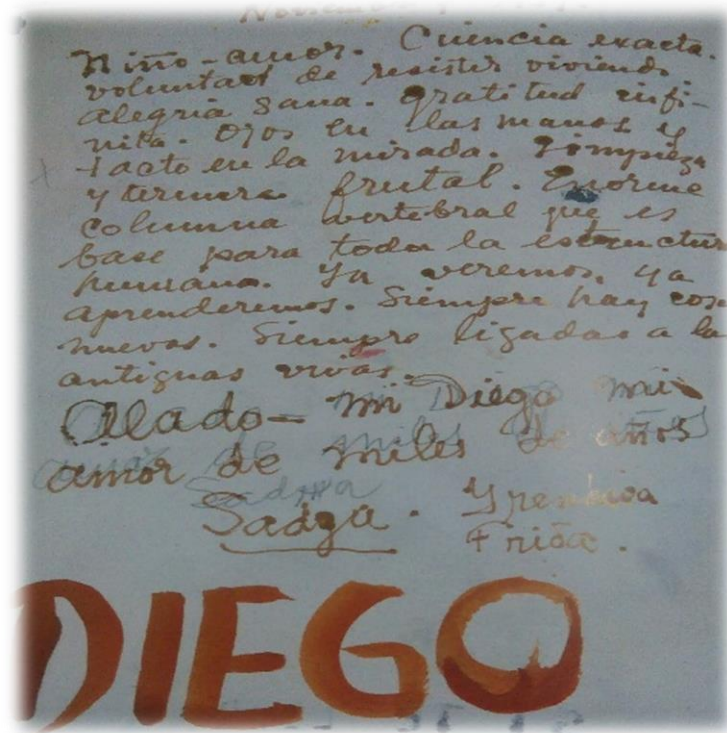 Niño-amor. Ciencia exacta.
voluntad de resistir viviendo
alegria sana. gratitud infi-
nita. Ojos en las manos y
tacto en la mirada. Limpieza
y ternura frutal. Enorme
columna vertebral que es
base para toda la estructur
humana. Ya veremos, ya
aprenderemos. Siempre hay cos
nuevas. Siempre ligadas a la
antiguas vivas.
Alado- mi Diego mi
amor de miles de años
Sadga. Yrenaica
Frida.
DIEGO